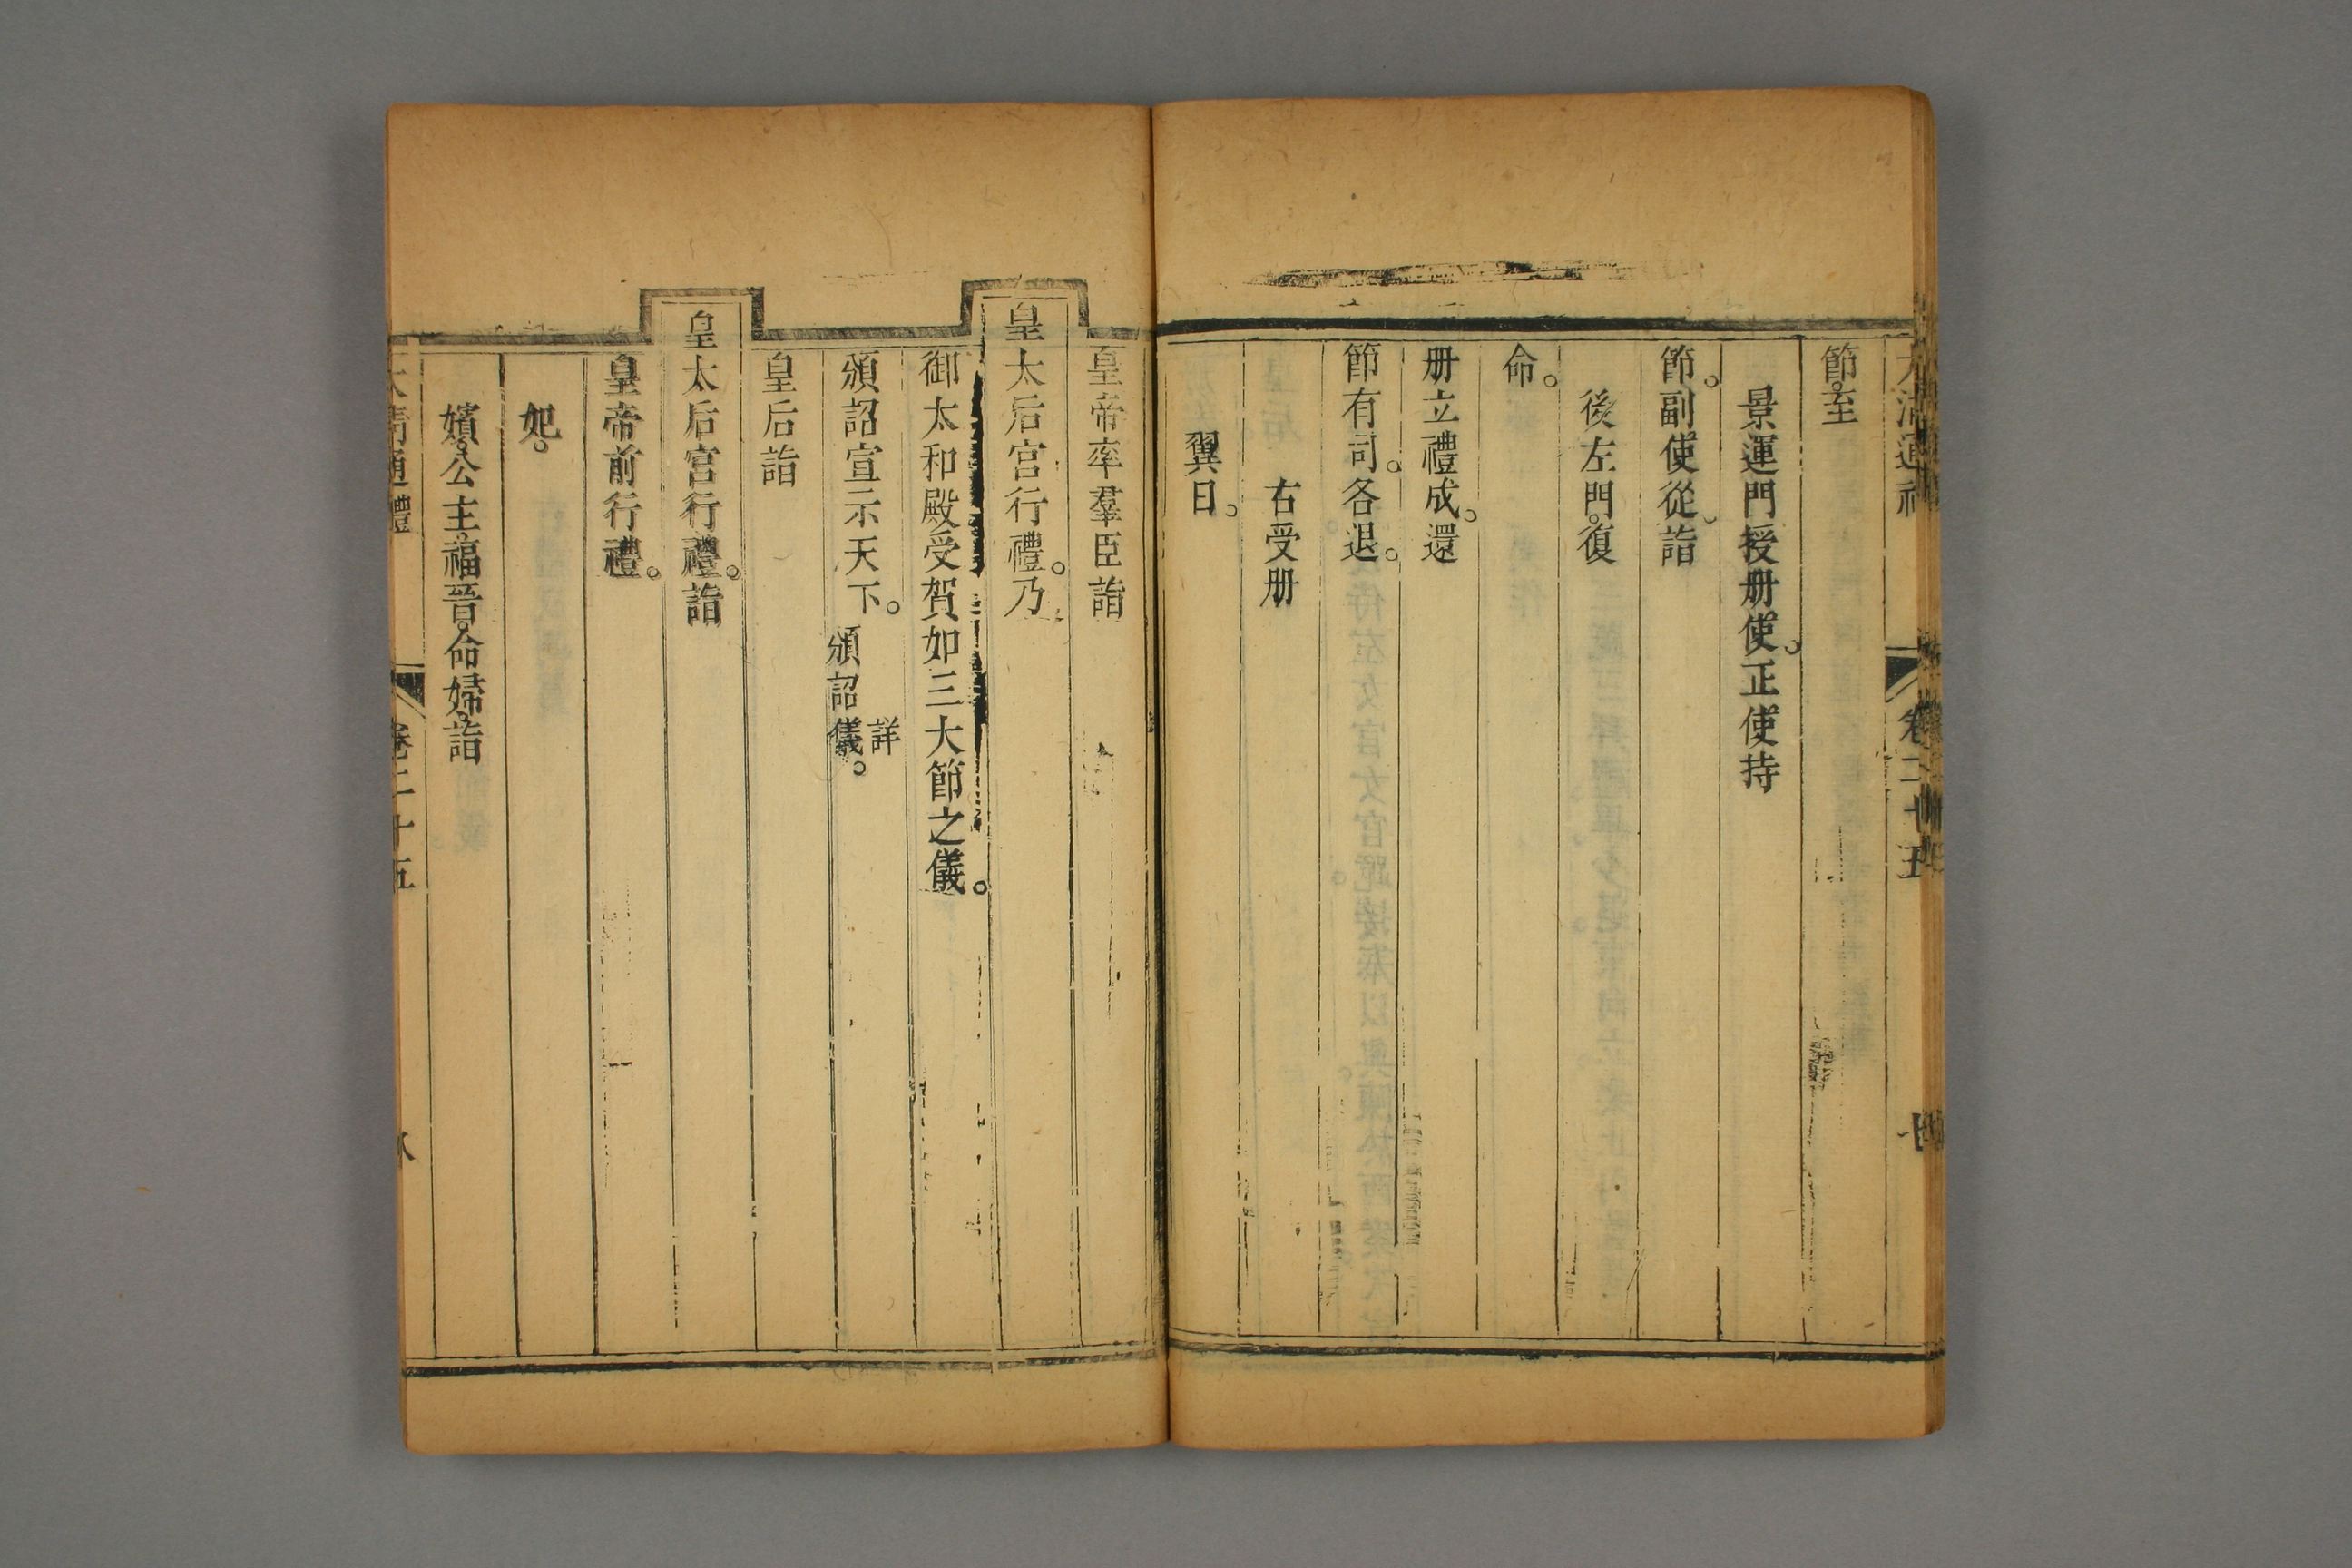 大清通禮 卷二十五 七
節。至
景運門授册使。正使持
節。副使從。詣
後左門。復
命。
册立禮成。還
節有司。各退。
右受册
翼日。
皇帝率羣臣詣
皇太后宮行禮。乃
御太和殿受賀如三大節之儀。
頒詔宣示天下。詳頒詔儀。
皇后詣
皇太后宮行禮。詣
皇帝前行禮。
妃。
嬪。公主。福晉。命婦。詣
大清通禮 卷二十五 八